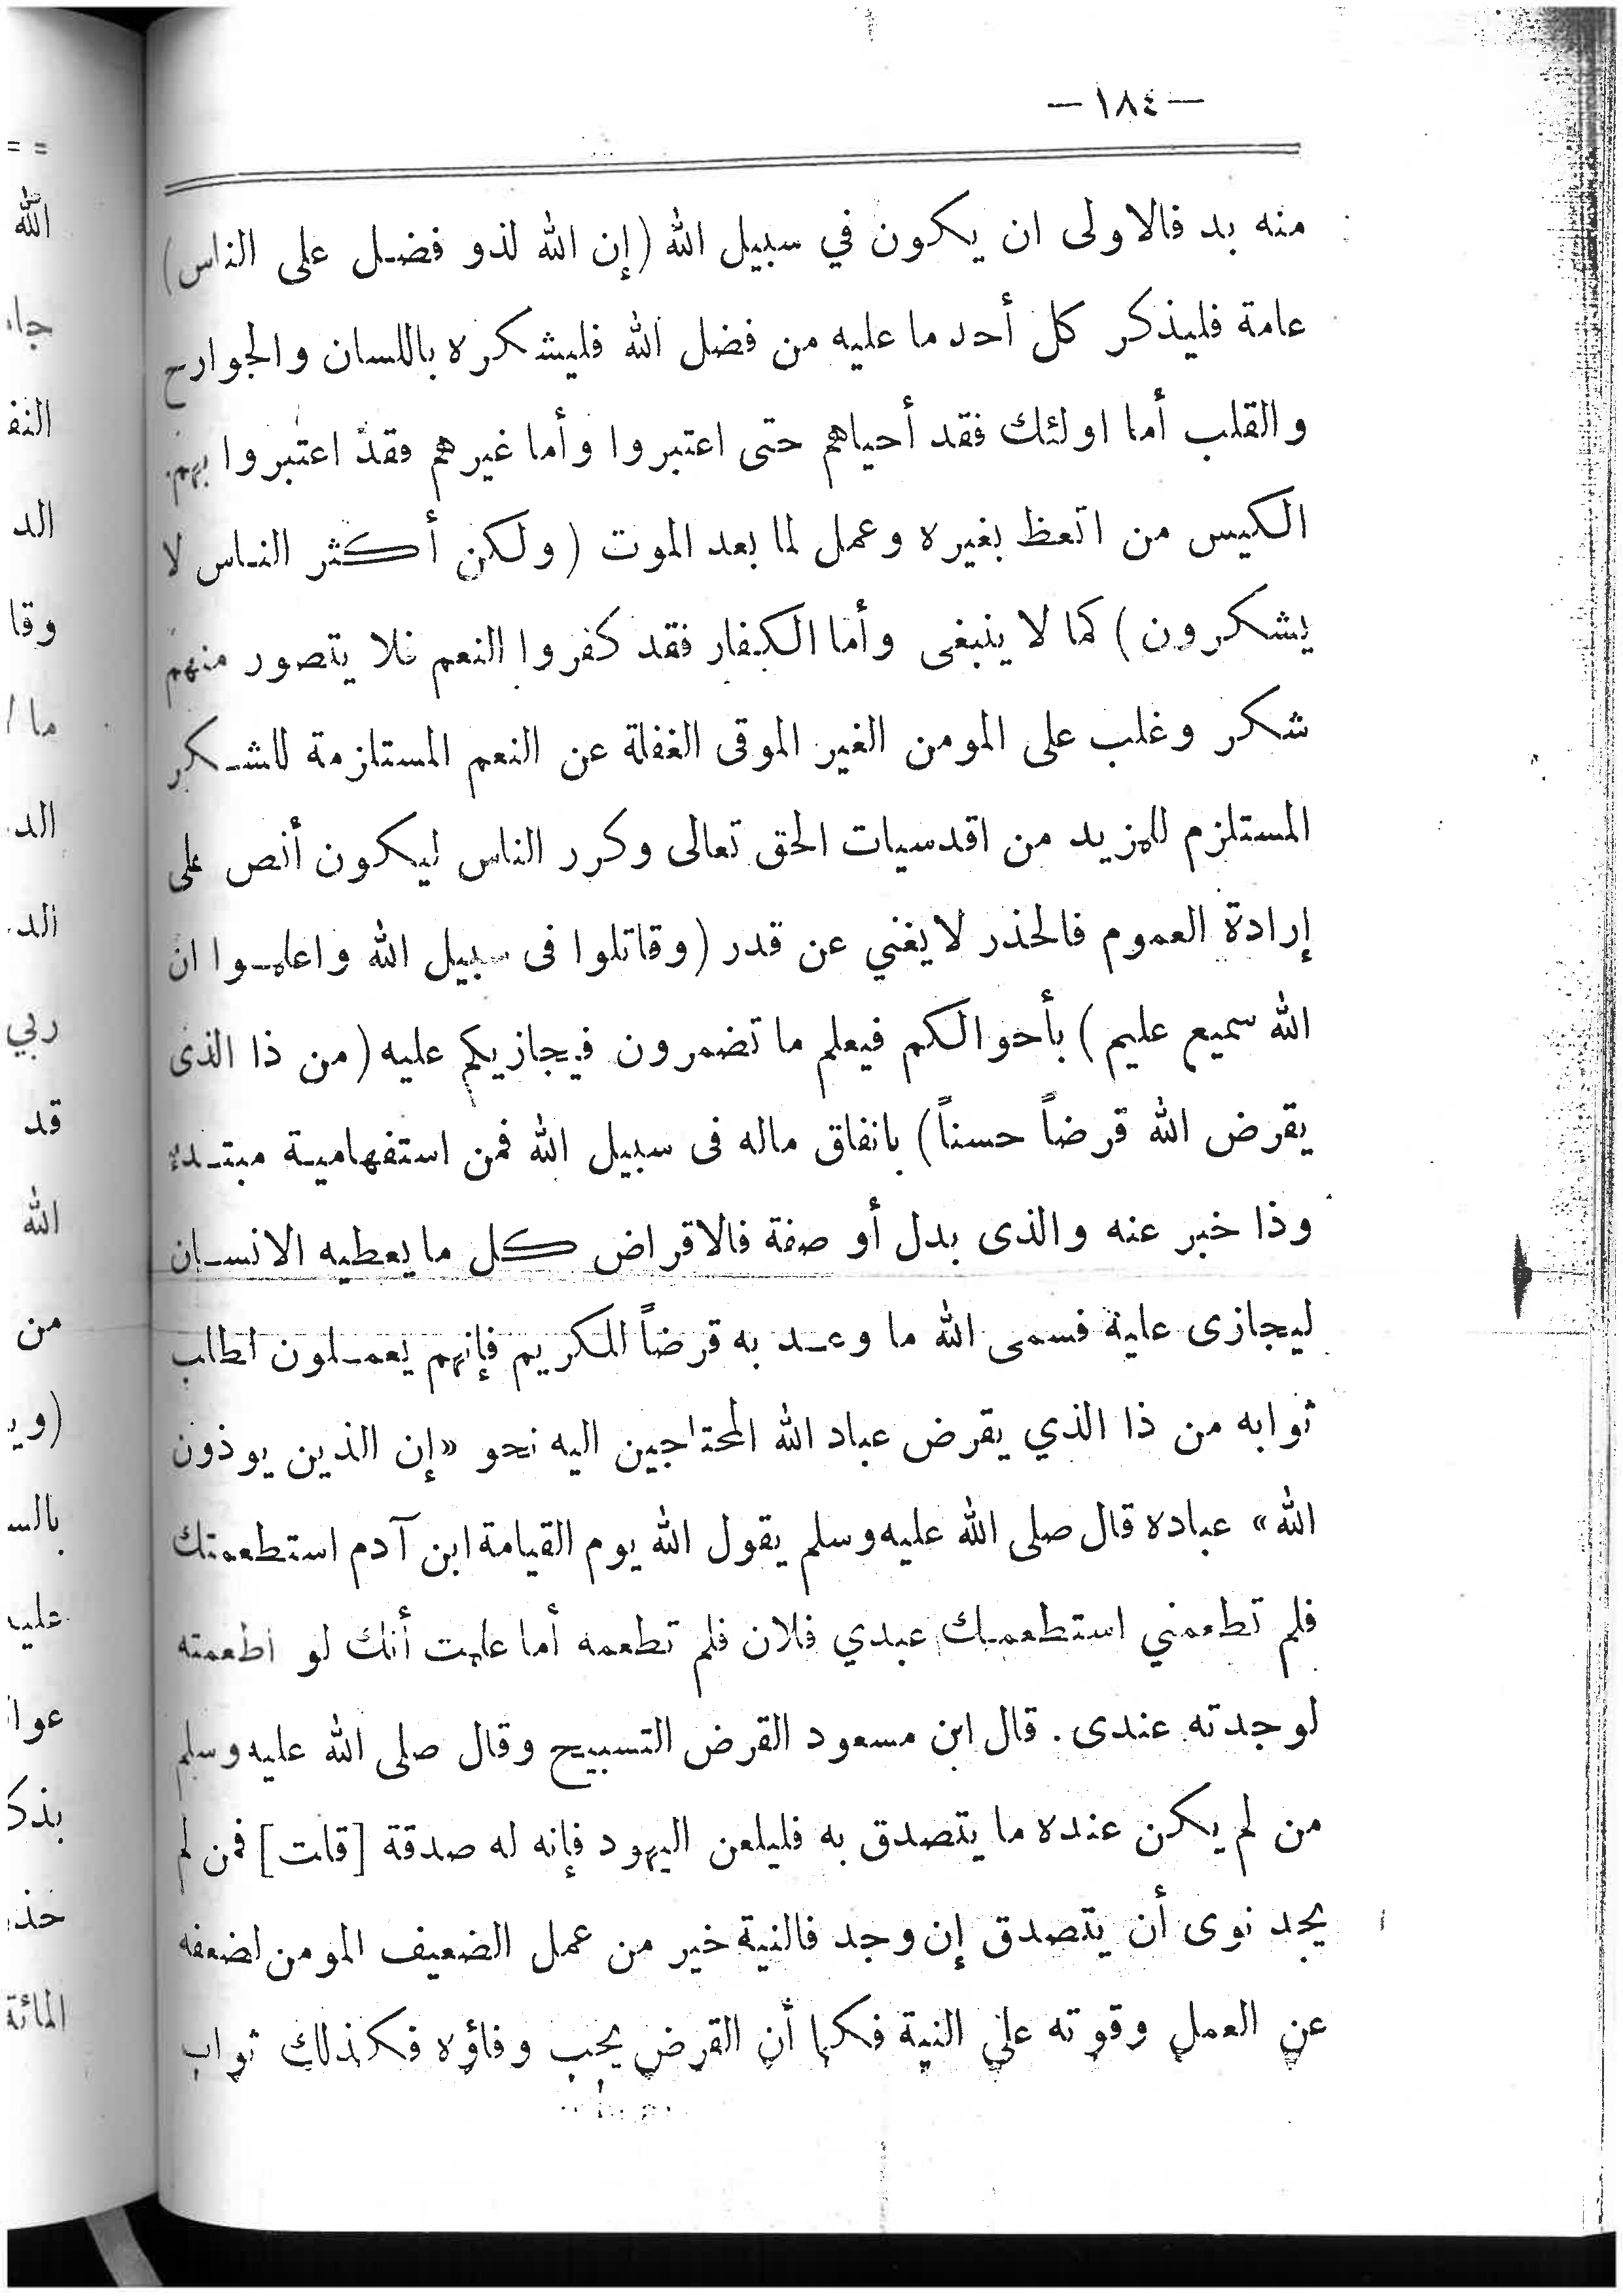 — ١٨٤ —
منه بد فالاولى ان يكون في سبيل الله (إن الله لذو فضل على الناس)
عامة فليذكر كل أحد ما عليه من فضل الله فليشكره باللسان والجوارح
والقلب أما اولئك فقد أحياهم حتى اعتبروا وأما غيرهم فقد اعتبروا بهم
الكيس من اتعظ بغيره وعمل لما بعد الموت (ولكن أكثر الناس لا
يشكرون) كما لا ينبغى وأما الكفار فقد كفروا النعم فلا يتصور منهم
شكر وغلب على المومن الغير الموقى الغفلة عن النعم المستلزمة للشكر
المستلزم للمزيد من اقدسيات الحق تعالى وكرر الناس ليكون أنص على
إرادة العموم فالحذر لا يغني عن قدر (وقاتلوا فى سبيل الله واعلموا ان
الله سميع عليم) بأحوالكم فيعلم ما تضمرون فيجازيكم عليه (من ذا الذى
يقرض الله قرضاً حسناً) بانفاق ماله فى سبيل الله فمن استفهامية مبتدء
وذا خبر عنه والذى بدل أو صفة فالاقراض كل ما يعطيه الانسان
ليجازى عليه فسمى الله ما وعد به قرضاً المكريم فإنهم يعملون لطلب
ثوابه من ذا الذي يقرض عباد الله المحتاجين اليه نحو «إن الذين يوذون
الله» عباده قال صلى الله عليه وسلم يقول الله يوم القيامة ابن آدم استطعمتك
فلم تطعمني استطعمك عبدي فلان فلم تطعمه أما علمت أنك لو اطعمته
لوجدته عندى. قال ابن مسعود القرض التسبيح وقال صلى الله عليه وسلم
من لم يكن عنده ما يتصدق به فليلعن اليهود فإنه له صدقة [قلت] فمن لم
يجد نوى أن يتصدق إن وجد فالنية خير من عمل الضعيف المومن لضعفه
عن العمل وقوته على النية فكما أن القرض يجب وفاؤه فكذلك ثواب